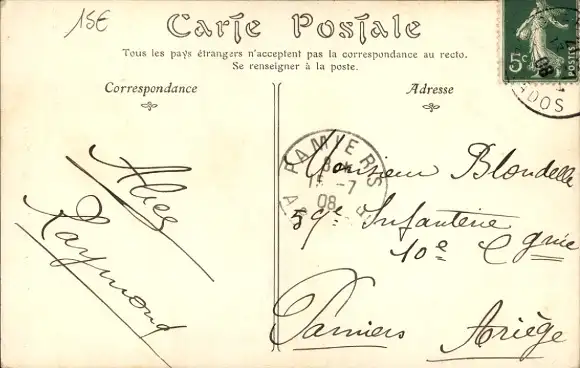 15€
Carte Postale
Tous les pays étrangers n'acceptent pas la correspondance au recto.
Se renseigner à la poste.
Correspondance
Adresse
5c
POSTES
08
ADOS
PAMIERS
8
15 -7
08
Raymond
Monsieur Blondelle
59e Infanterie
10e Cgnie
Pamiers Ariège